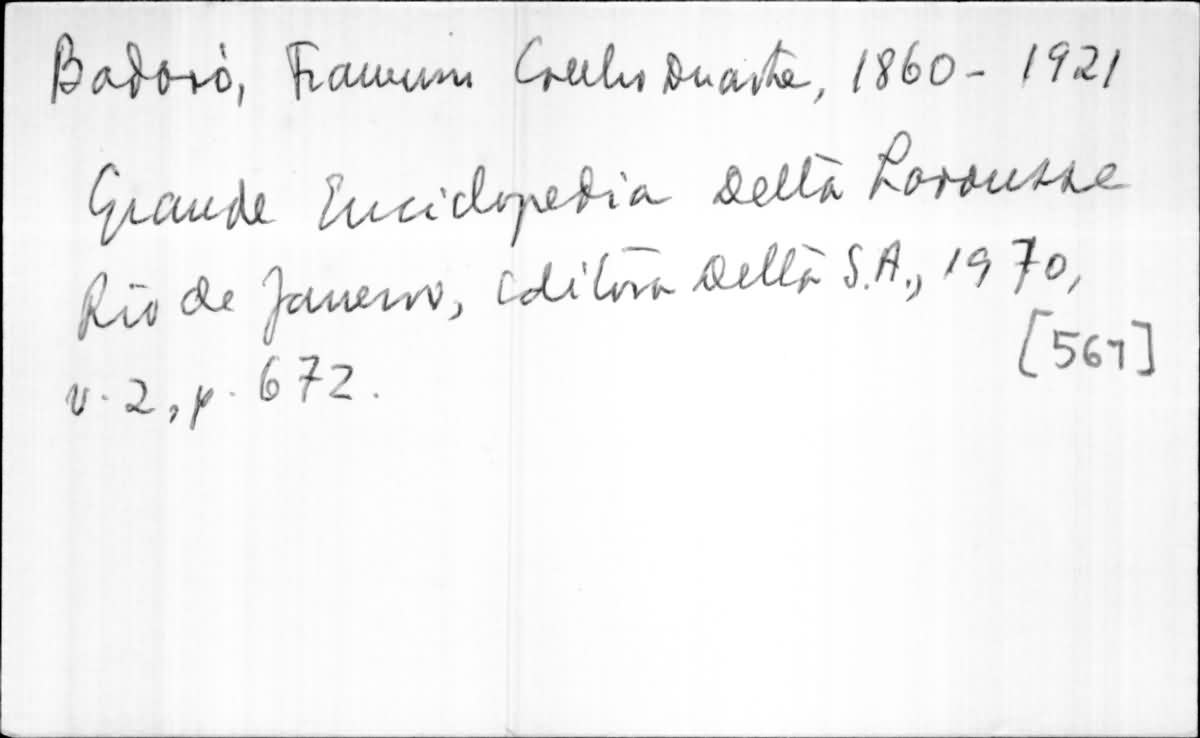 Badaró, Francisco Coelho Duarte, 1860-1921
Grande Enciclopedia Delta Larousse
Rio de Janeiro, Editora Delta S.A., 1970,
[567]
v. 2, p. 672.